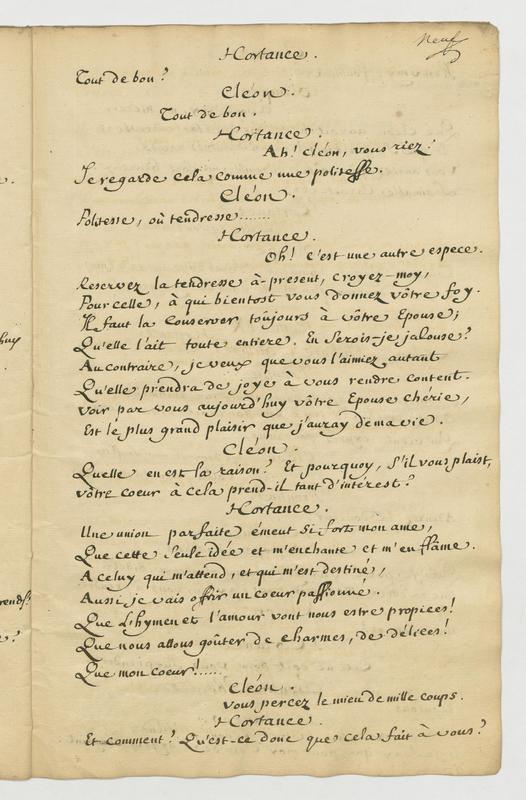 Neuf
Hortance.
Tout de bon?
Cléon.
Tout de bon.
Hortance.
Ah! Cléon, vous riez!
Je regarde cela comme une politesse.
Cléon.
Politesse, où tendresse.......
Hortance.
Oh! C'est une autre espece.
Reservez la tendresse à-present, croyez-moy,
Pour celle, à qui bientost vous donnez vôtre foy.
Il faut la Conserver toujours à vôtre Epouse;
Qu'elle l'ait toute entiere. En Serois-je jalouse?
Au contraire, je veux que vous l'aimiez autant
Qu'elle prendra de joye à vous rendre content.
Voir par vous aujourd'huy vôtre Epouse chérie,
Est le plus grand plaisir que j'auray de ma vie.
Cléon.
Quelle en est la raison? Et pourquoy, S'il vous plaist,
vôtre coeur à cela prend-il tant d'intérest?
Hortance.
Une union parfaite émeut Si fort mon ame,
Que cette Seule idée et m'enchante et m'enflâme.
A celuy qui m'attend, et qui m'est destiné,
Aussi je vais offrir un coeur passionné.
Que L'hymen et l'amour vont nous estre propices!
Que nous allons goûter de charmes, de délices!
Que mon coeur!.....
Cléon.
vous percez le mien de mille coups.
Hortance.
Et comment? Qu'est-ce donc que cela fait à vous?